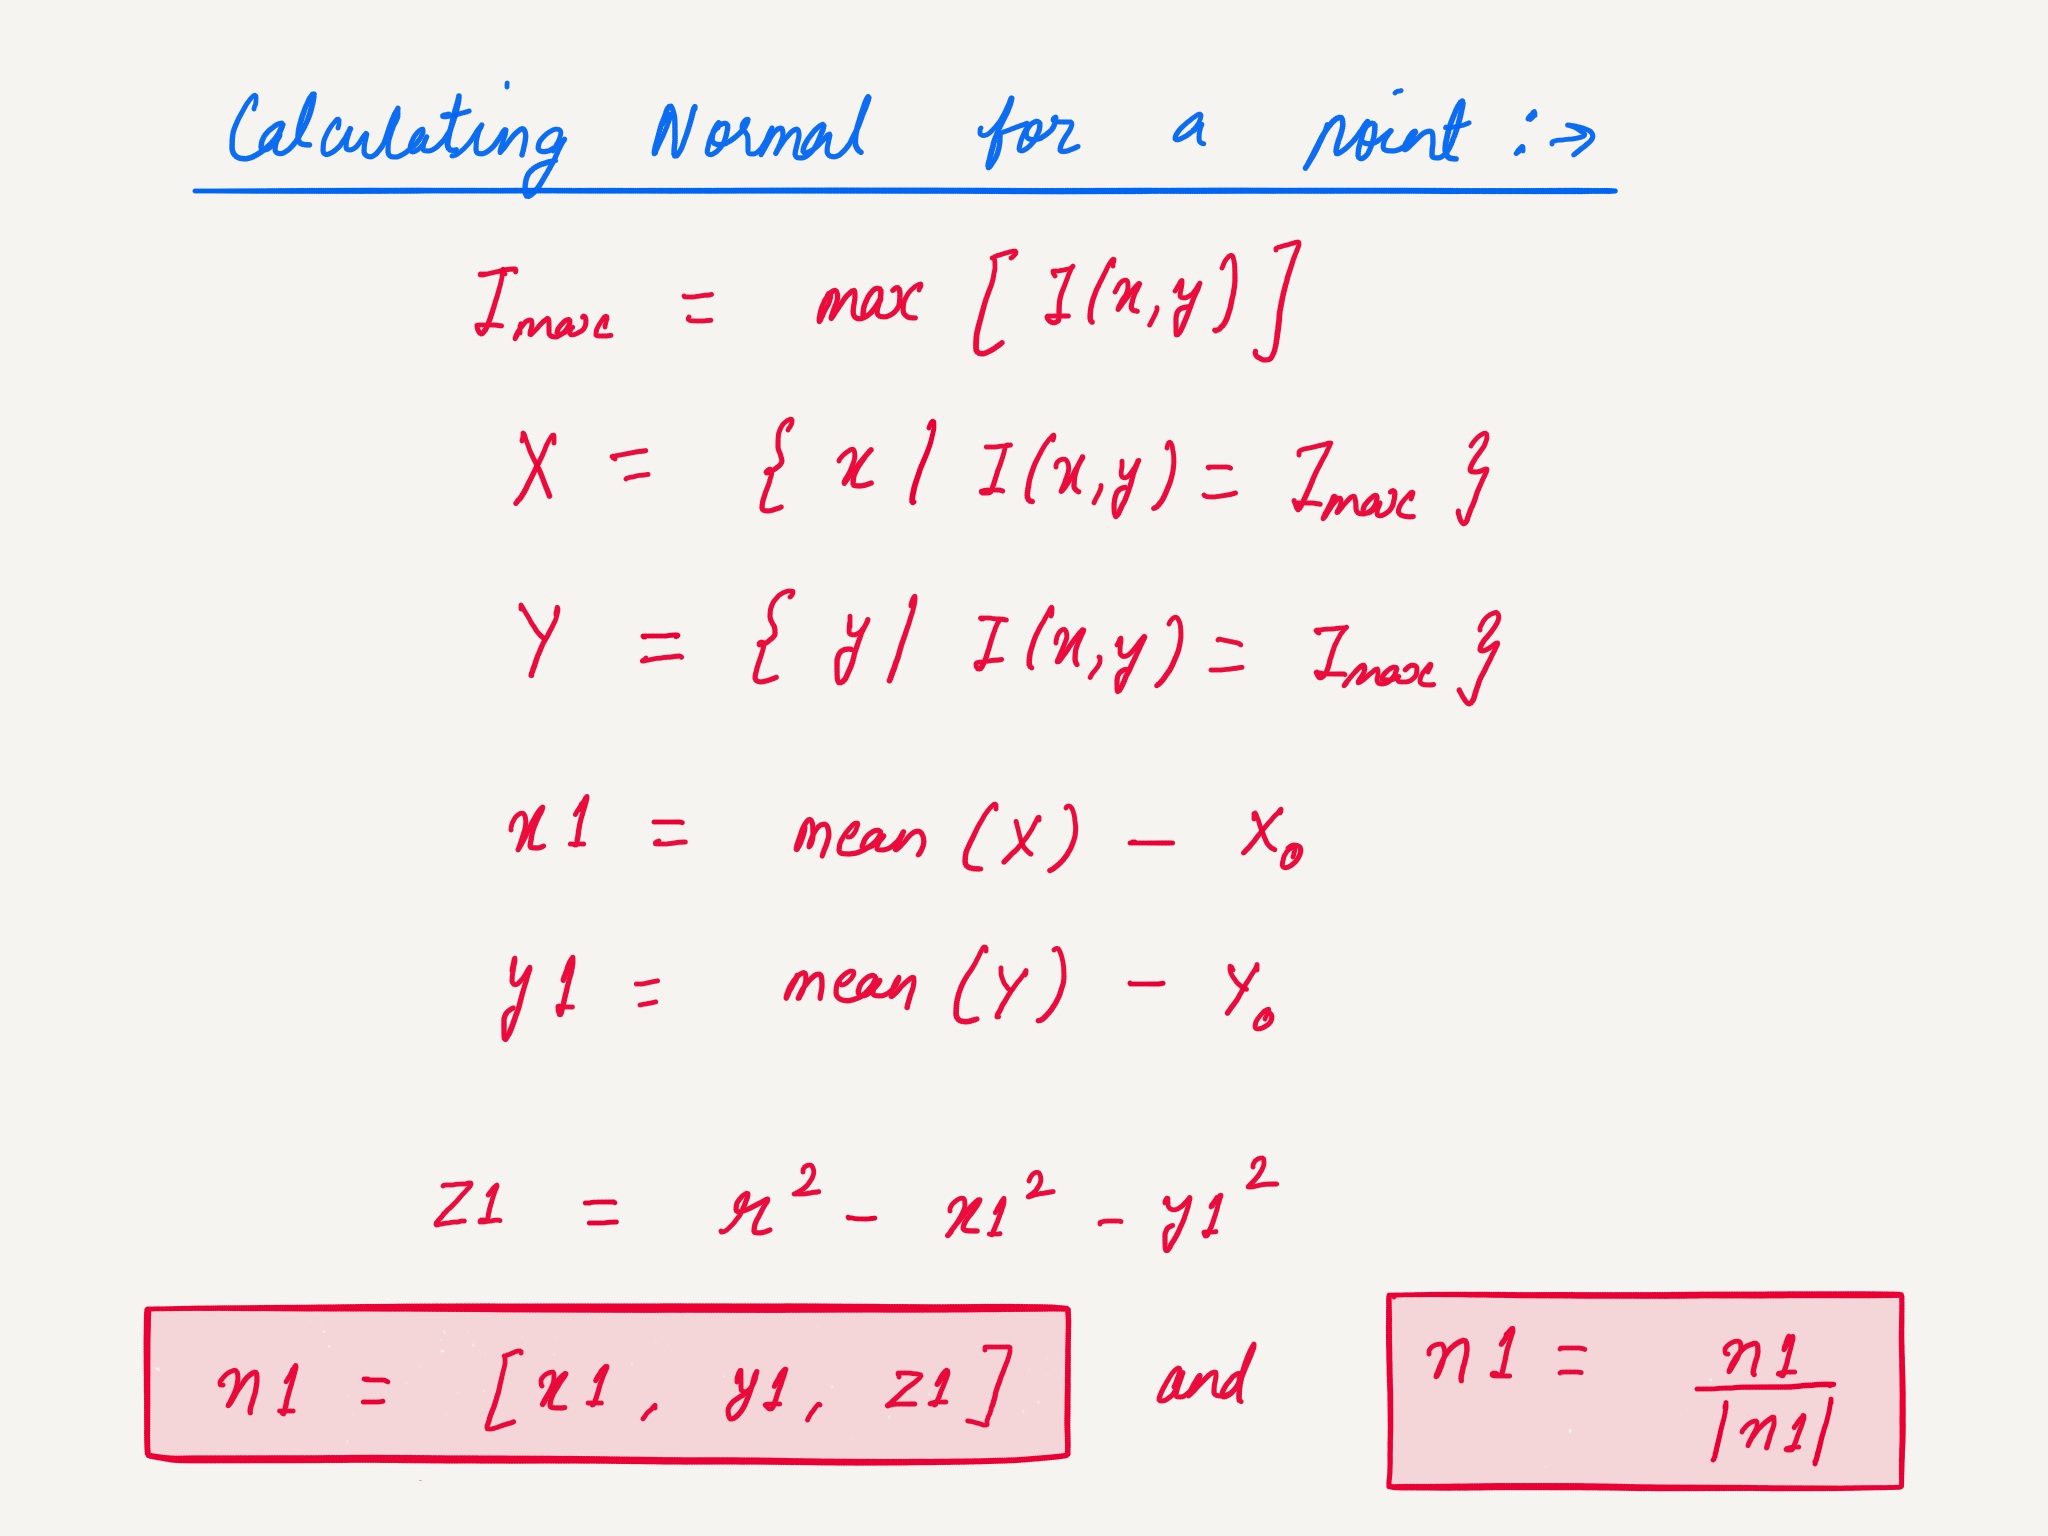 Calculating Normal for a point :→
I_max = max [ I(x,y) ]
X = { x | I(x,y) = I_max }
Y = { y | I(x,y) = I_max }
x1 = mean (X) - X₀
y1 = mean (Y) - Y₀
z1 = r² - x1² - y1²
n1 = [x1, y1, z1] and n1 = n1 / |n1|